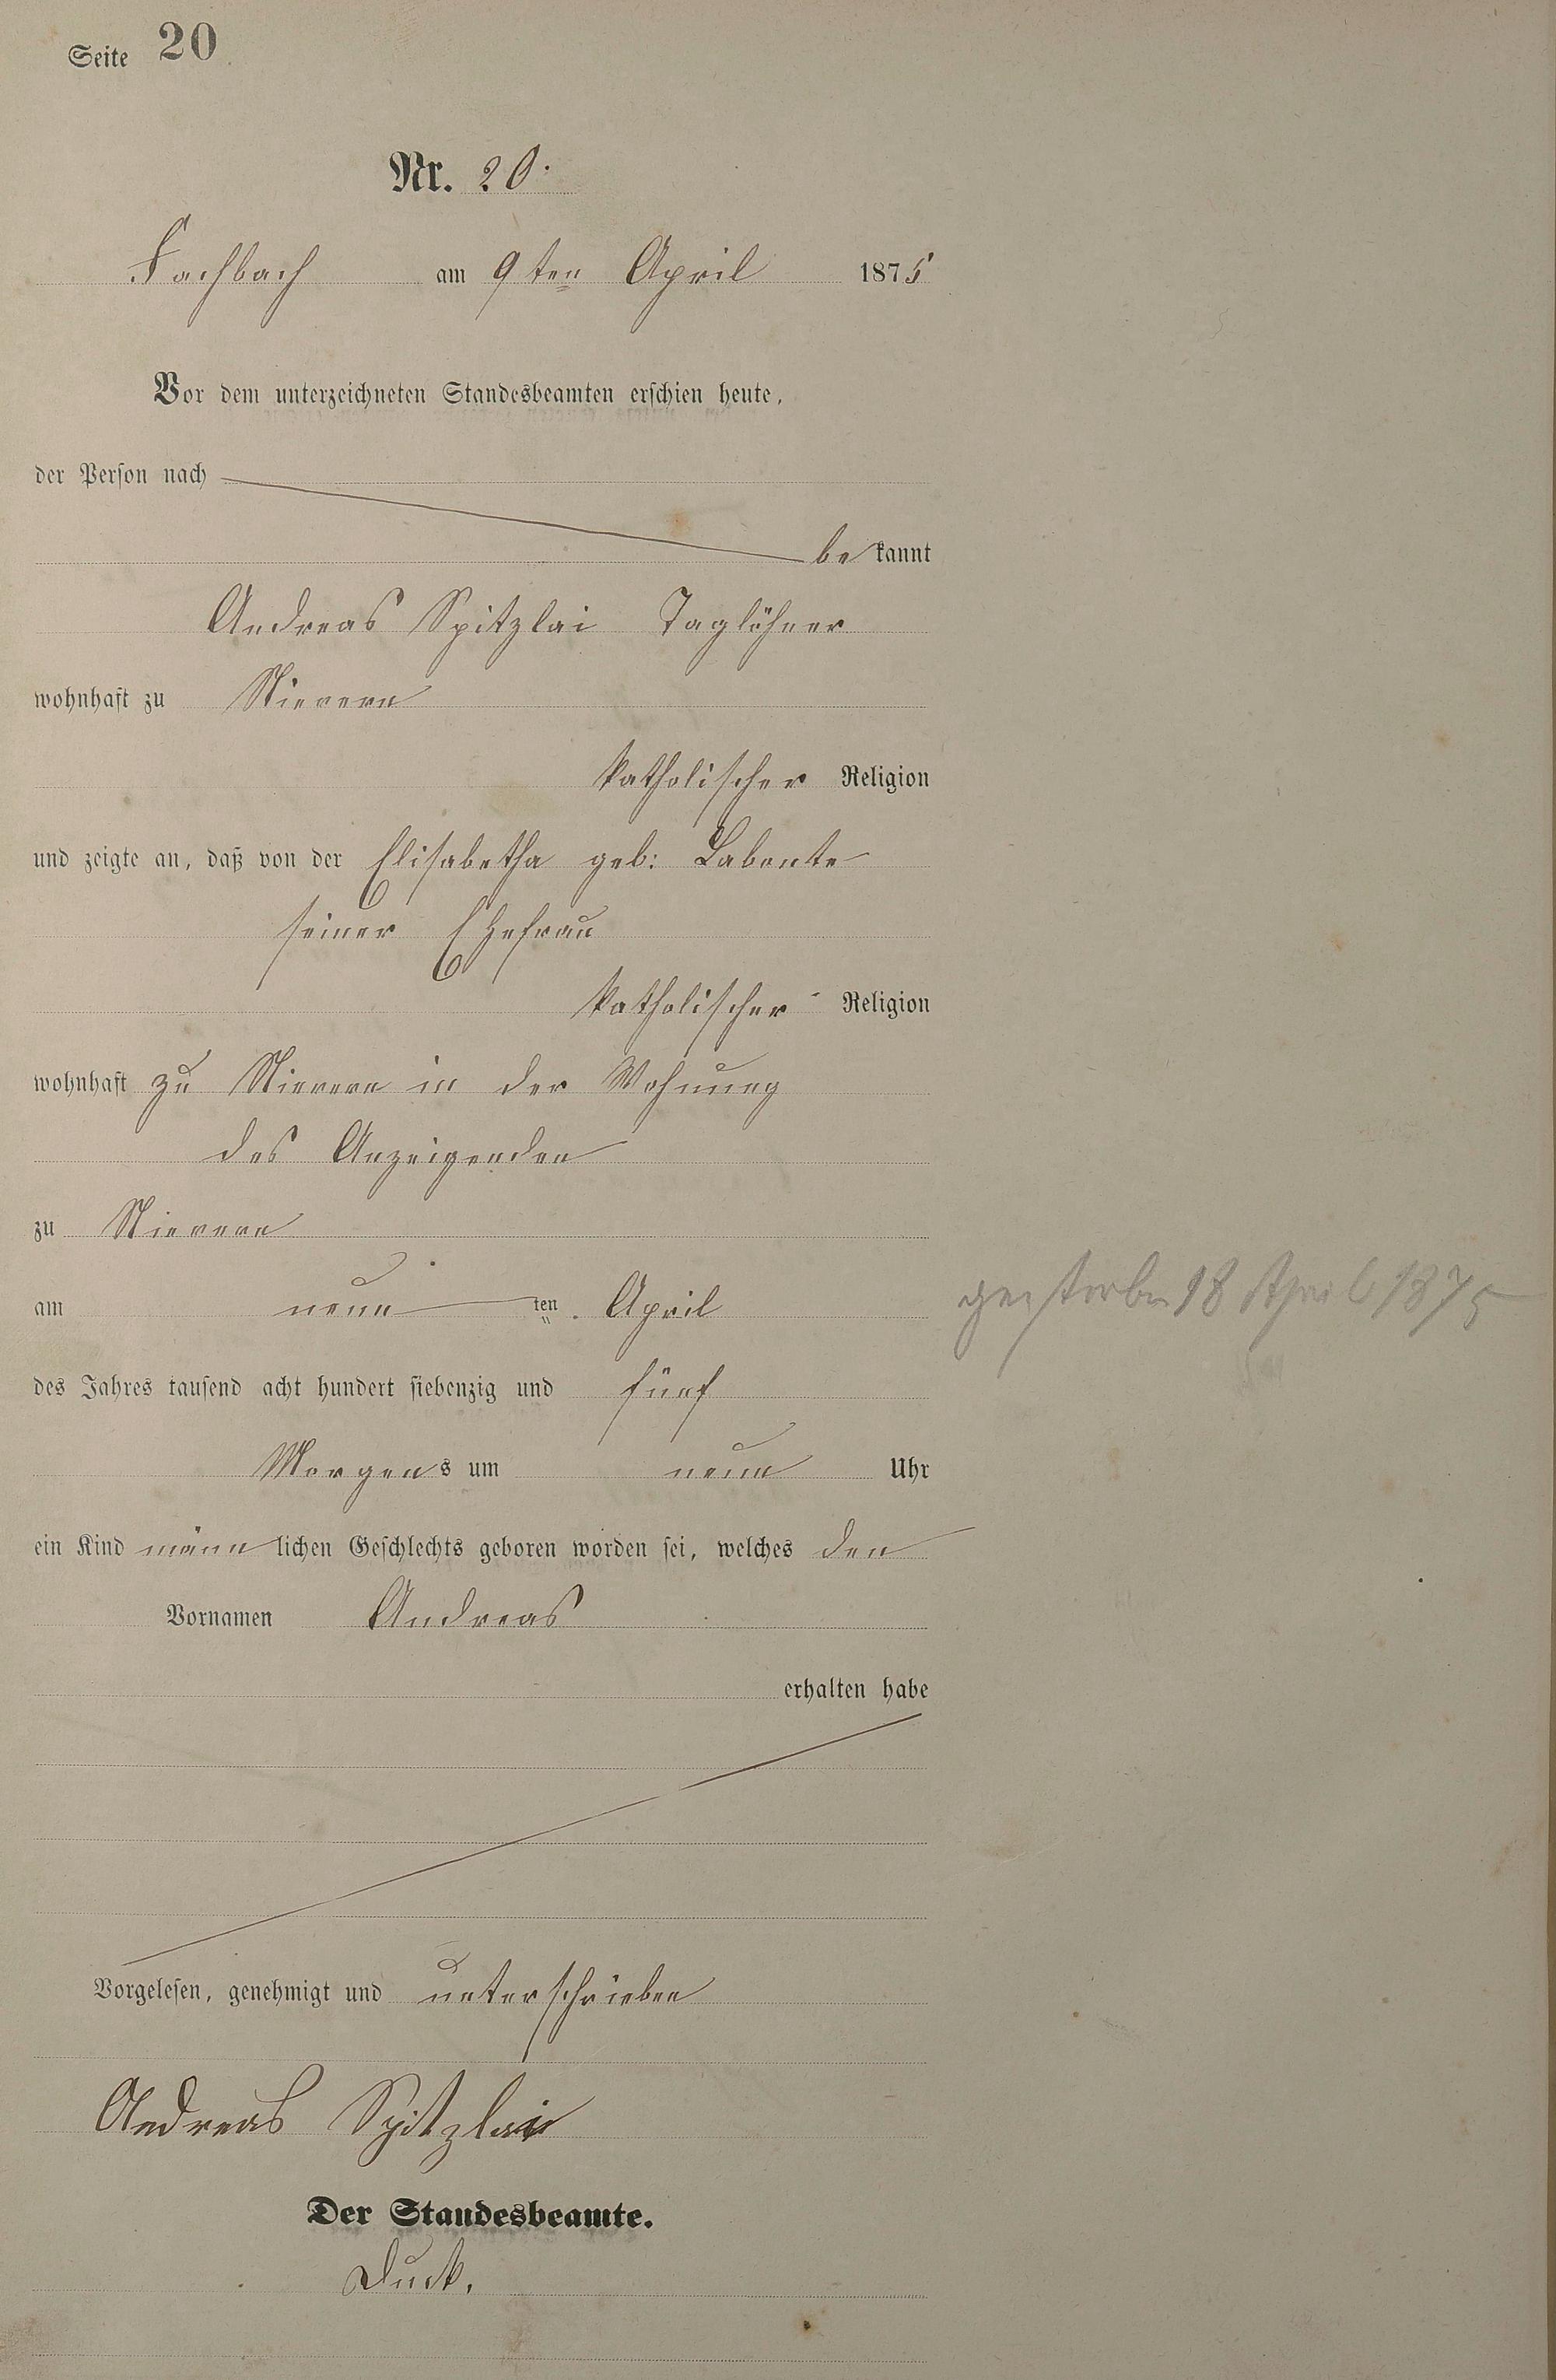 Seite 20
Nr. 20.
Fachbach am 9ten April 1875
Vor dem unterzeichneten Standesbeamten erschien heute,
der Person nach
bekannt
Andreas Spitzlai Taglöhner
wohnhaft zu Nievern
katholischer Religion
und zeigte an, daß von der Elisabetha geb: Labonte
seiner Ehefrau
katholischer Religion
wohnhaft zu Nievern in der Wohnung
des Anzeigenden
zu Nievern
am neun ten April
gestorben 18 April 1875
des Jahres tausend acht hundert siebenzig und fünf
Morgens um neun Uhr
ein Kind männlichen Geschlechts geboren worden sei, welches den
Vornamen Andreas
erhalten habe
Vorgelesen, genehmigt und unterschrieben
Andreas Spitzlai
Der Standesbeamte.
Duck.